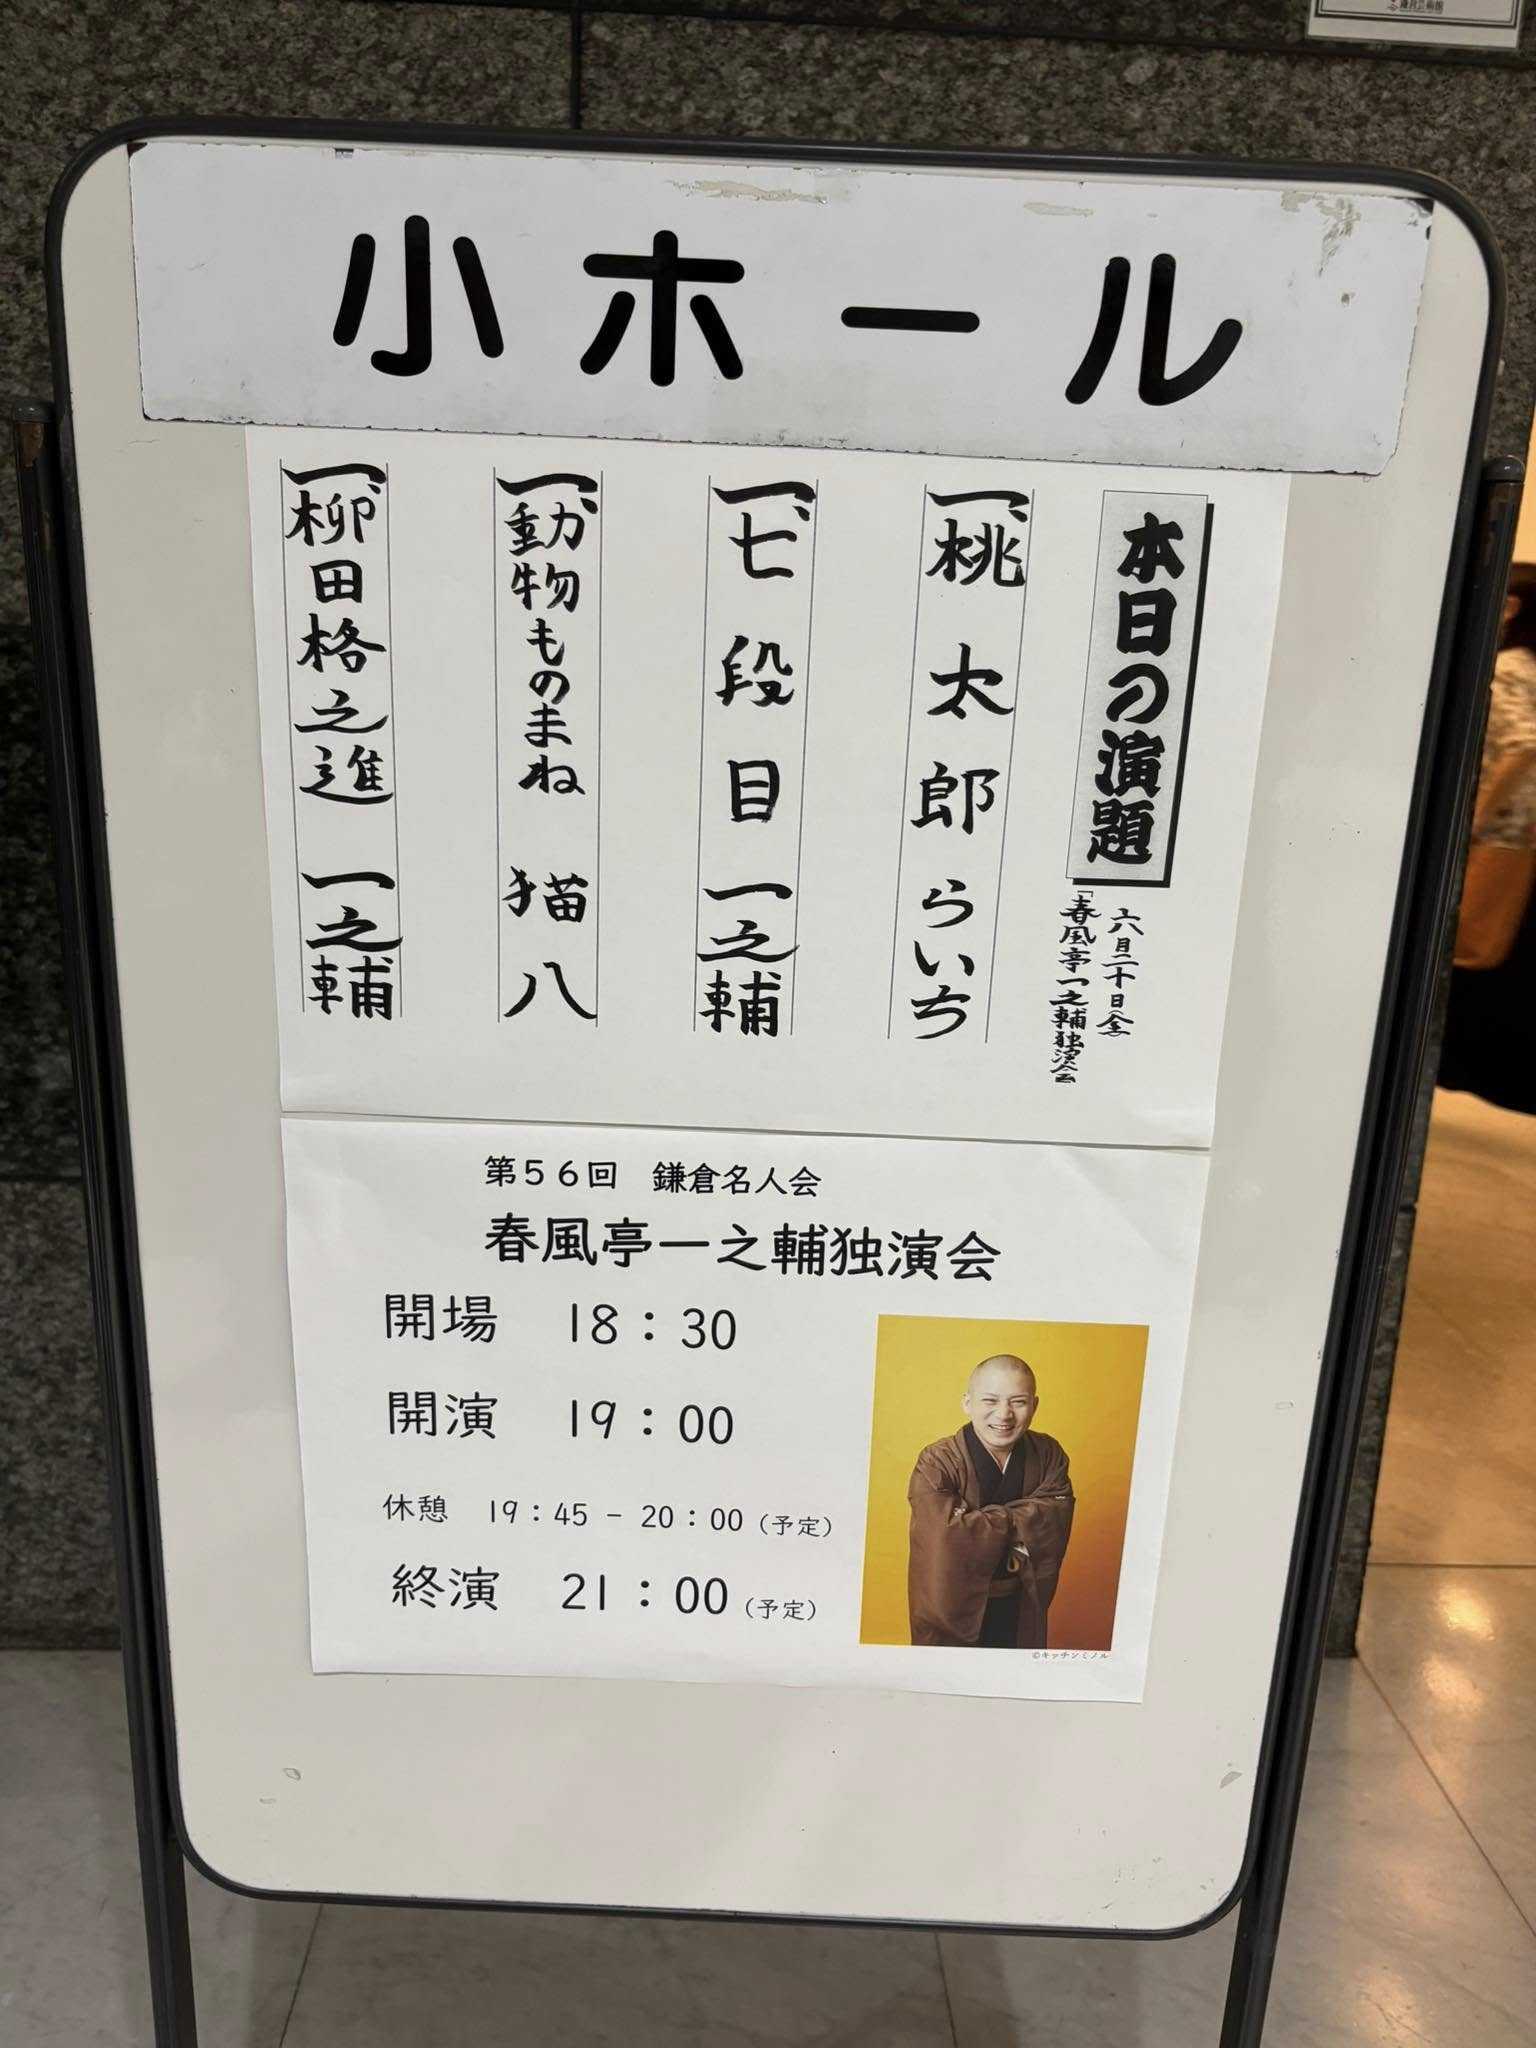 鎌倉芸術館
小ホール
本日の演題
六月二十日(金)
「春風亭一之輔独演会
一、桃太郎 らいち
一、七段目 一之輔
一、動物ものまね 猫八
一、柳田格之進 一之輔
第56回 鎌倉名人会
春風亭一之輔独演会
開場 18:30
開演 19:00
休憩 19:45 - 20:00 (予定)
終演 21:00 (予定)
©キッチンミノル